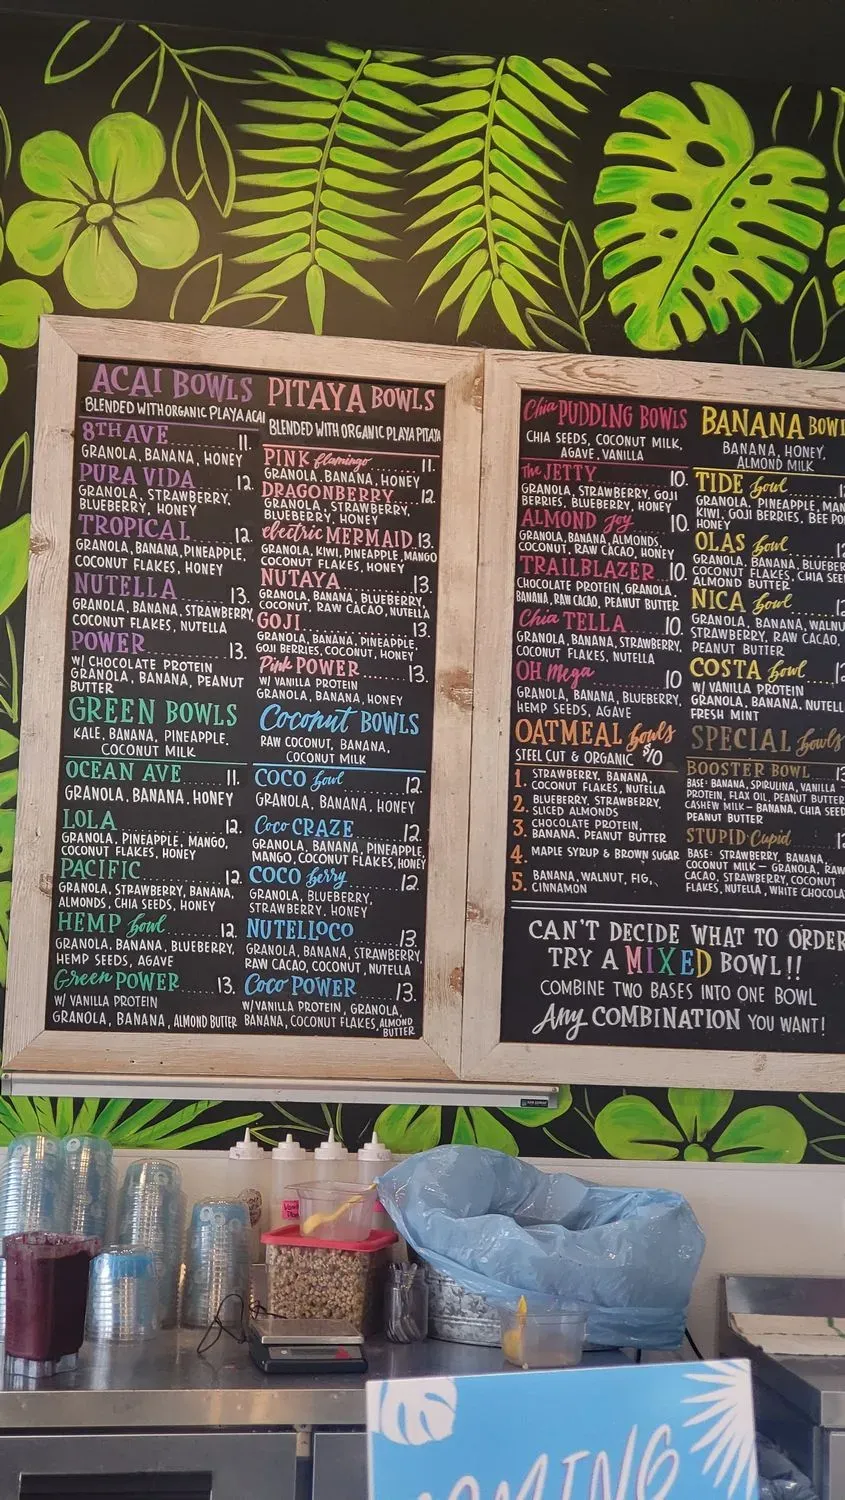 ACAI BOWLS
BLENDED WITH ORGANIC PLAYA ACAI
8TH AVE 11.
GRANOLA, BANANA, HONEY
PURA VIDA 12.
GRANOLA, STRAWBERRY,
BLUEBERRY, HONEY
TROPICAL 12.
GRANOLA, BANANA, PINEAPPLE,
COCONUT FLAKES, HONEY
NUTELLA 13.
GRANOLA, BANANA, STRAWBERRY,
COCONUT FLAKES, NUTELLA
POWER 13.
W/ CHOCOLATE PROTEIN
GRANOLA, BANANA, PEANUT
BUTTER
GREEN BOWLS
KALE, BANANA, PINEAPPLE,
COCONUT MILK
OCEAN AVE 11.
GRANOLA, BANANA, HONEY
LOLA 12.
GRANOLA, PINEAPPLE, MANGO,
COCONUT FLAKES, HONEY
PACIFIC 12.
GRANOLA, STRAWBERRY, BANANA,
ALMONDS, CHIA SEEDS, HONEY
HEMP bowl 12.
GRANOLA, BANANA, BLUEBERRY,
HEMP SEEDS, AGAVE
Green POWER 13.
W/ VANILLA PROTEIN
GRANOLA, BANANA, ALMOND BUTTER
PITAYA BOWLS
BLENDED WITH ORGANIC PLAYA PITAYA
PINK flamingo 11.
GRANOLA, BANANA, HONEY
DRAGONBERRY 12.
GRANOLA, STRAWBERRY,
BLUEBERRY, HONEY
electric MERMAID 13.
GRANOLA, KIWI, PINEAPPLE, MANGO
COCONUT FLAKES, HONEY
NUTAYA 13.
GRANOLA, BANANA, BLUEBERRY,
COCONUT, RAW CACAO, NUTELLA
GOJI 13.
GRANOLA, BANANA, PINEAPPLE,
GOJI BERRIES, COCONUT, HONEY
Pink POWER 13.
W/ VANILLA PROTEIN
GRANOLA, BANANA, HONEY
Coconut BOWLS
RAW COCONUT, BANANA,
COCONUT MILK
COCO bowl 12.
GRANOLA, BANANA, HONEY
Coco CRAZE 12.
GRANOLA, BANANA, PINEAPPLE,
MANGO, COCONUT FLAKES, HONEY
COCO berry 12.
GRANOLA, BLUEBERRY,
STRAWBERRY, HONEY
NUTELLOCO 13.
GRANOLA, BANANA, STRAWBERRY,
RAW CACAO, COCONUT, NUTELLA
Coco POWER 13.
W/ VANILLA PROTEIN, GRANOLA,
BANANA, COCONUT FLAKES, ALMOND
BUTTER
Chia PUDDING BOWLS
CHIA SEEDS, COCONUT MILK,
AGAVE, VANILLA
The JETTY 10.
GRANOLA, STRAWBERRY, GOJI
BERRIES, BLUEBERRY, HONEY
ALMOND Joy 10.
GRANOLA, BANANA, ALMONDS,
COCONUT, RAW CACAO, HONEY
TRAILBLAZER 10.
CHOCOLATE PROTEIN, GRANOLA,
BANANA, RAW CACAO, PEANUT BUTTER
Chia TELLA 10.
GRANOLA, BANANA, STRAWBERRY,
COCONUT FLAKES, NUTELLA
OH Mega 10
GRANOLA, BANANA, BLUEBERRY,
HEMP SEEDS, AGAVE
OATMEAL bowls
STEEL CUT & ORGANIC $10
1. STRAWBERRY, BANANA,
COCONUT FLAKES, NUTELLA
2. BLUEBERRY, STRAWBERRY,
SLICED ALMONDS
3. CHOCOLATE PROTEIN,
BANANA, PEANUT BUTTER
4. MAPLE SYRUP & BROWN SUGAR
5. BANANA, WALNUT, FIG,
CINNAMON
BANANA BOWL
BANANA, HONEY,
ALMOND MILK
TIDE bowl
GRANOLA, PINEAPPLE, MAN
KIWI, GOJI BERRIES, BEE PO
HONEY
OLAS bowl
GRANOLA, BANANA, BLUEBER
COCONUT FLAKES, CHIA SEE
ALMOND BUTTER
NICA bowl
GRANOLA, BANANA, WALNU
STRAWBERRY, RAW CACAO,
PEANUT BUTTER
COSTA bowl
W/ VANILLA PROTEIN
GRANOLA, BANANA, NUTELL
FRESH MINT
SPECIAL bowls
BOOSTER BOWL 13
BASE: BANANA, SPIRULINA, VANILLA
PROTEIN, FLAX OIL, PEANUT BUTTER
CASHEW MILK – BANANA, CHIA SEED
PEANUT BUTTER
STUPID Cupid
BASE: STRAWBERRY, BANANA,
COCONUT MILK – GRANOLA, RAW
CACAO, STRAWBERRY, COCONUT
FLAKES, NUTELLA, WHITE CHOCOLA
CAN'T DECIDE WHAT TO ORDER
TRY A MIXED BOWL!!
COMBINE TWO BASES INTO ONE BOWL
Any COMBINATION YOU WANT!
OMING